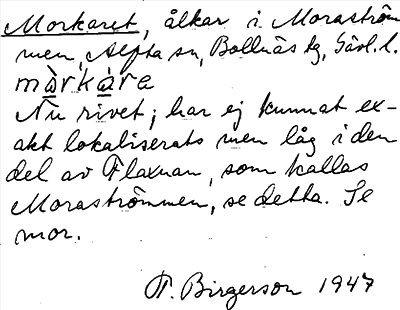 Morkaret, ålkar i Moraström
men, Alfta sn, Bollnäs tg, Gävl. l.
mòrkàra
Nu rivet; har ej kunnat ex-
akt lokaliserats men låg i den
del av Flaxnan, som kallas
Moraströmmen, se detta. Se
mor.
F. Birgerson 1947